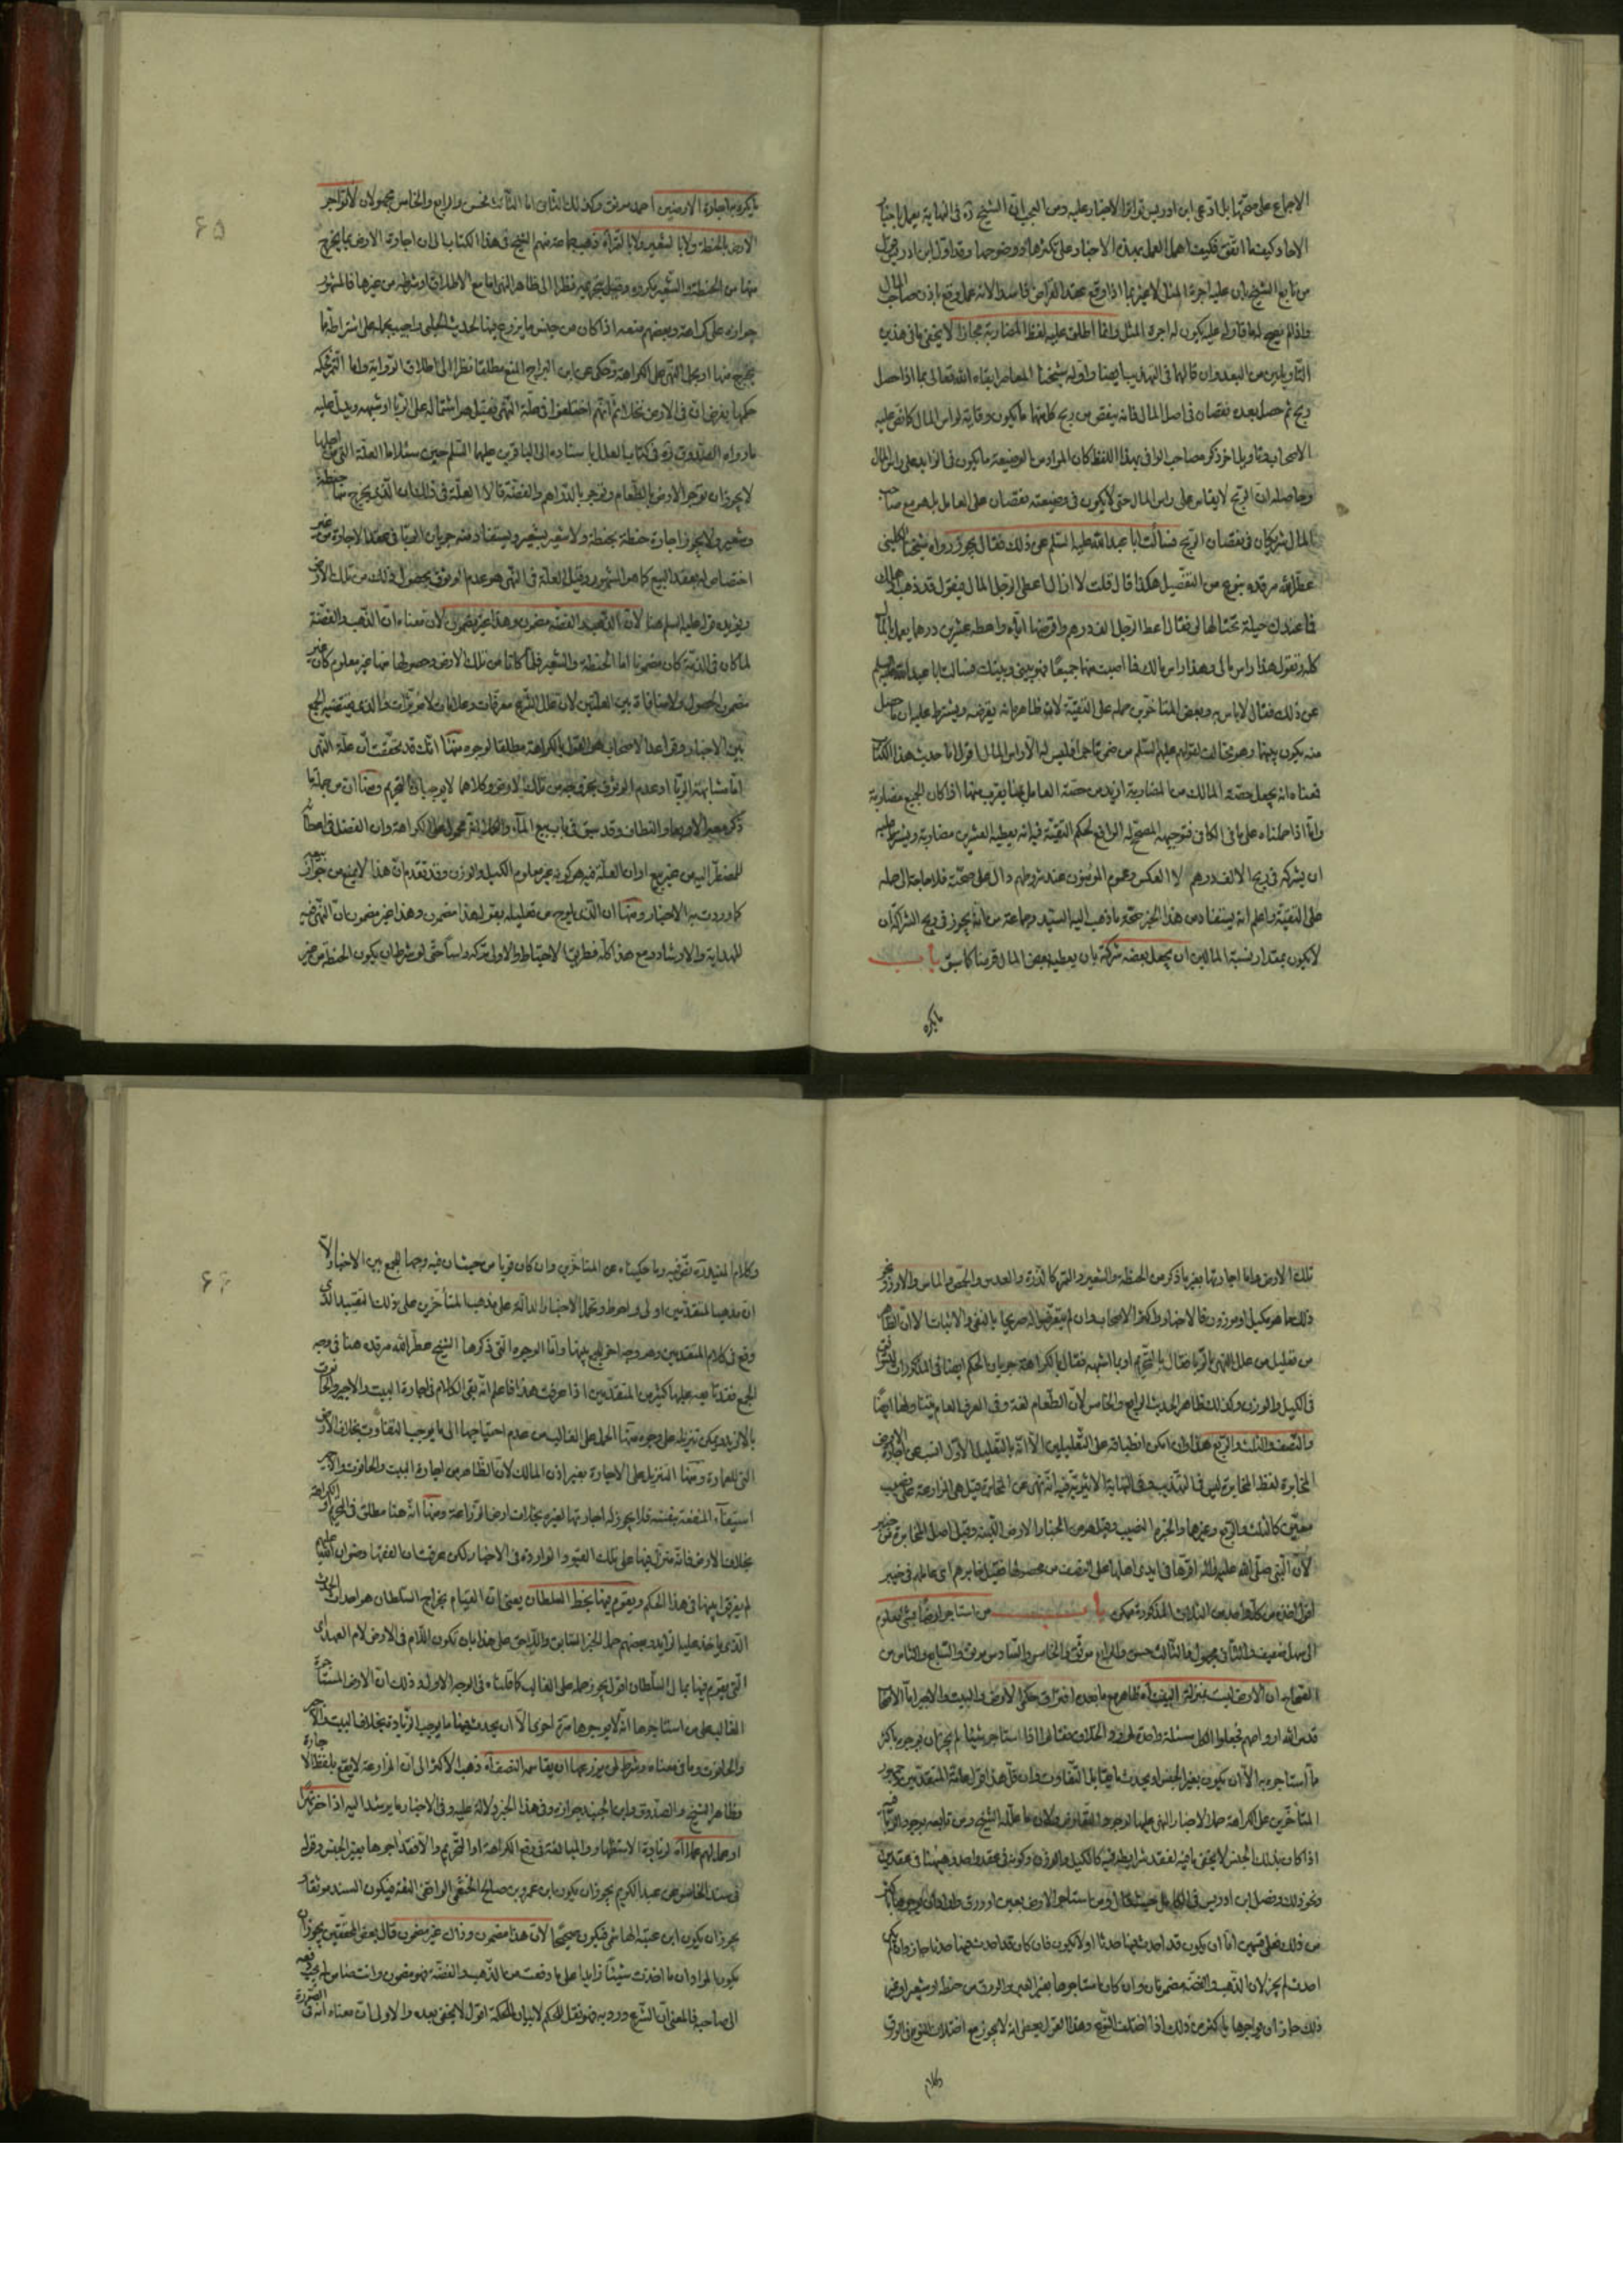 الاجماع على صحتها بل ادعى ابن ادريس تواتر الاخبار عليه ومن العجب ان الشيخ ره فى النهاية يعمل باخبار
الاحاد وكيف ما اتفق فكيف اهمل العمل بهذه الاخبار على تكثرها ووضوحها وقد اول ابن ادريس
من تابع الشيخ بان عليه اجرة المثل لا غير بما اذا وقع عقد القراض فاسدا لانه عمل وقع باذن صاحب المال
واذا لم يصح له ما قاوله عليه يكون له اجرة المثل وانما اطلق عليه لفظ المضاربة مجازا ولا يخفى ما فى هذين
التأويلين من البعد وان قالهما فى التهذيب ايضا واوله شيخنا المعاصر ابقاه الله تعالى بما اذا حصل
ربح ثم حصل بعده نقصان فى اصل المال فانه ينقص من ربح كل منهما ما يكون وقاية لراس المال كما نص عليه
الاصحاب وتأويل اخر ذكره صاحب الوافى بهذا اللفظ كان المراد من الوضيعة ما يكون فى الزايد على راس المال
وحاصله ان الربح لا يقاس على راس المال حتى لا يكون فى وضيعته نقصان على العامل بل هو مع صاحب
المال شريكان فى نقصان الربح فسألت ابا عبد الله عليه السلم عن ذلك فقال يجوز رواه شيخنا الكلينى
عطر الله مرقده بنوع من التفصيل هكذا قال قلت لا ازال اعطى الرجل المال فيقول قد ذهب او هلك
فما عندك حيلة تحتالها لى فقال اعط الرجل الف درهم واقرضها اياه واعطه عشرين درهما يعمل بالمال
كله وتقول هذا راس مالى وهذا راس مالك فما اصبت منهما جميعا فهو بينى وبينك فسالت ابا عبد الله عليه السلم
عن ذلك فقال لا باس به وبعض المتاخرين حمله على التقية لان ظاهره انه يقرضه ويشترط عليه ان ما حصل
منه يكون بينهما وهو مخالف لقولهم عليهم السلم من ضمن تاجرا فليس له الا راس المال اقول اما حديث هذا الكتاب
فمعناه انه يجعل حصة المالك من المضاربة ازيد من حصة العامل بما يقرب منها اذا كان الجميع مضاربة
واما اذا حملناه على ما فى الكافى فتوجيهه المصحح له الرافع لحكم التقية فيه انه يعطيه العشرين مضاربة ويشترط عليه
ان يشركه فى ربح الالف درهم لا العكس وعموم المؤمنون عند شروطهم دال على صحته فلا حاجة الى حمله
على التقية واعلم انه يستفاد من هذا الخبر صحة ما ذهب اليه السيد وجماعة من انه يجوز فى ربح الشركة ان
لا يكون بمقدار نسبة المالين ان يجعل بعضه شركة بان يعطيه بعض المال قرضا كما سبق باب
ما يكره
ما يكره به اجارة الارضين احمد موثق وكذلك الثانى اما الثالث فحسن والرابع والخامس مجهولان لا تؤاجر
الارض بالحنطة ولا بالشعير ولا بالتمر اه ذهب جماعة منهم الشيخ فى هذا الكتاب الى ان اجارة الارض بما يخرج
منها من الحنطة والشعير مكروه وقيل بتحريمه نظرا الى ظاهر النهى اما مع الاطلاق او شرطه من غيرها فالمشهور
جوازه على كراهة وبعضهم منعه اذا كان من جنس ما يزرع فيها لحديث الحلبى واجيب بحمله على اشتراطه مما
يخرج منها او بحمل النهى على الكراهة وحكى عن ابن البراج المنع مطلقا نظرا الى اطلاق الرواية واما التمر فحكمه
حكمها بفرض ان فى الارض نخلا ثم انهم اختلفوا فى علة النهى فقيل هو اشتماله على الربا او شبهه ويدل عليه
ما رواه الصدوق ره فى كتاب العلل باسناده الى الباقرين عليهما السلم حين سئلا ما العلة التى من اجلها
لا يجوز ان تؤجر الارض بالطعام وتؤجر بالدراهم والفضة قالا العلة فى ذلك ان الذى يخرج منها حنطة
وشعير ولا يجوز اجارة حنطة بحنطة ولا شعير بشعير ويستفاد منه جريان الربا فى عقد الاجارة من غير
اختصاص له بعقد البيع كما هو المشهور وقيل العلة فى النهى هو عدم الوثوق بحصول ذلك من تلك الارض
ويؤيده قوله عليه السلم هنا لان الذهب والفضة مضمون وهذا غير مضمون لان معناه ان الذهب والفضة
لما كان فى الذمة كان مضمونا اما الحنطة والشعير فلما كانا من تلك الارض وحصولها منها غير معلوم كان غير
مضمون الحصول ولا منافاة بين العلتين لان علل الشرع معرفات وعلامات لا مؤثرات والذى يقتضيه الجمع
بين الاخبار وقواعد الاصحاب هو القول بالكراهة مطلقا لوجوه منها انك قد تحققت ان علة النهى
اما مشابهة الربا او عدم الوثوق بخروجه من تلك الارض وكلاهما لا يوجبان التحريم ومنها ان من جملة ما
ذكر معه الاربعاء والنطاف وقد سبق فى باب بيع الماء والكلاء انه محمول على الكراهة وان الفضل فى اعطائه
للمضطر اليه من غير بيع او ان العلة فيه هو كونه غير معلوم الكيل والوزن وقد تقدم ان هذا لا يمنع من جواز بيعه
كما وردت به الاخبار ومنها ان الذى يلوح من تعليله بقوله هذا مضمون وهذا غير مضمون ان النهى فيه
للهداية والارشاد ومع هذا كله فطريق الاحتياط والاولى تركه راسا حتى لو شرط ان يكون الحنطة من غير
تلك الارض واما اجارتها بغير ما ذكر من الحنطة والشعير والتمر كالذرة والعدس والحمص والماش والارز ونحو
ذلك مما هو مكيل او موزون فالاخبار واكثر الاصحاب وان لم يتعرضوا له صريحا بالنفى والاثبات الا ان الظاهر
من تعليل من علل النهى بالربا فقال بالتحريم او بما اشبهه فقال بالكراهة جريان الحكم ايضا فى المذكورات
فى الكيل والوزن وكذلك ظاهر الحديث الرابع والخامس لان الطعام لغة وفى العرف العام يتناولها ايضا
والنصف والثلث والربع هذا وان امكن انطباقه على التعليلين الا انه بالتعليل الاول انسب عن اجارة الارض
المخابرة لفظ المخابرة ليس فى التهذيب وفى النهاية الاثيرية فيه انه نهى عن المخابرة قيل هى المزارعة على نصيب
معين كالثلث والربع وغيرهما والخبرة النصيب وقيل هو من الخبار الارض اللينة وقيل اصل المخابرة من خيبر
لان النبى صلى الله عليه واله اقرها فى ايدى اهلها على النصف من محصولها فقيل خابرهم اى عاملهم فى خيبر
اقول اخذه من كل واحد من الثلاث المذكورة ممكن باب من استاجر ارضا بشئ معلوم
الى سهل ضعيف والثانى مجهول والثالث حسن والرابع موثق والخامس والسادس موثق والسابع والثامن من
الصحاح ان الارض ليست بمنزلة البيت اه ظاهره مع ما بعده افتراق حكم الارض والبيت والاجير اما الاصحاب
قدس الله ارواحهم فجعلوا الكل مسئلة واحدة فى الخلاف فقالوا اذا استاجر شيئا لم يجز ان يؤجره باكثر
مما استاجره به الا ان يكون بغير الجنس او يحدث ما يقابل التفاوت وان قل هذا قول عامة المتقدمين وجمهور
المتأخرين على الكراهة حملا لاخبار النهى عليها لوجود التعارض ولان ما علله الشيخ ومن تابعه بوجود الربا فيه
اذا كان بذلك الجنس لا يخفى ما فيه لفقد شرايطه فيه كالكيل والوزن وكونه فى عقد واحد وهيهنا فى عقدين
ونحو ذلك وفصل ابن ادريس فى الكامل حيث قال ومن استاجر الارض بعين او ورق واراد ان يؤجرها باكثر
من ذلك فعلى قسمين اما ان يكون قد احدث فيها حدثا او لا يكون فان كان قد احدث فيها حدثا جاز وان لم يكن
احدث لم يجز لان الذهب والفضة مضمونان وان كان استاجرها بغير العين والورق من حنطة او شعير او غير
ذلك جاز ان يؤاجرها باكثر من ذلك اذا اختلف النوع وهذا القول يعطى انه لا يجوز مع اختلاف النوع فى الورق
وكلام
وكلام المفيد ره توقف فيه وما حكيناه عن المتأخرين وان كان قويا من حيث ان فيه وجها للجمع بين الاخبار الا
ان مذهب المتقدمين اولى واحوط وتحمل الاخبار الدالة على مذهب المتأخرين على ذلك التقييد الذى
وقع فى كلام المتقدمين وهو وجه اخر للجمع بينها واما الوجوه التى ذكرها الشيخ عطر الله مرقده هنا فى وجه
الجمع فقد تابعه عليها كثير من المتقدمين اذا عرفت هذا فاعلم انه بقى الكلام فى اجارة البيت والاجير والحانوت
بالازيد ويمكن تنزيله على وجوه منها الحمل على الغالب من عدم احتياجها الى ما يوجب التفاوت بخلاف الارض
التى للعمارة ومنها التنزيل على الاجارة بغير اذن المالك لان الظاهر من اجارة البيت والحانوت والاجير
استيفاء المنفعة بنفسه فلا يجوز له اجارتها لغيره بخلاف ارض الزراعة ومنها انه هنا مطلق فى التحريم او الكراهة
بخلاف الارض فانه منزل فيها على تلك القيود الواردة فى الاخبار لكن عرفت ان الفقهاء رضوان الله عليهم
لم يفرقوا بينها فى هذا الحكم ويقوم فيها بحظ السلطان يعنى ان القيام بخراج السلطان هو احداث الحدث
الذى ياخذ عليه الزايد وبعضهم حمل الخبر السابق واللاحق على هذا بان تكون اللام فى الارض لام العهد اى
التى يقوم فيها بمال السلطان اقول يجوز حمله على الغالب كما قلناه فى الوجه الاول وذلك ان الارض المستاجرة
الغالب على من استاجرها انه لا يوجرها مرة اخرى الا ان يحدث فيها ما يوجب الزيادة بخلاف البيت والاجير
والحانوت وما فى معناه وشرط لمن يزرعها ان يقاسمه النصف اه ذهب الاكثر الى ان المزارعة لا يقع بلفظ الاجارة
وظاهر الشيخ والصدوق وابن الجنيد جوازه وفى هذا الخبر دلالة عليه وفى الاخبار ما يرشد اليه اذا حفر نهرا
او عمل لهم عملا اه لزيادة الاستظهار والمبالغة فى رفع الكراهة او التحريم والا فقد اجرها بغير الجنس وقوله
فى سند الخامس عن عبد الكريم يجوز ان يكون ابن عمرو بن صالح الخثعمى الواقفى الثقة فيكون السند موثقا و
يجوز ان يكون ابن عتبة الهاشمى فيكون صحيحا لان هذا مضمون وذاك غير مضمون قال بعض المحققين يجوز ان
يكون المراد ان ما اخذت شيئا زايدا على ما دفعت من الذهب والفضة فهو مضمون وانت ضامن له يجب دفعه
الى صاحبه فالمعنى ان الشرع ورد به فهو نقل للحكم لا لبيان الحكمة اقول لا يخفى بعده والاولى ان معناه انه فى